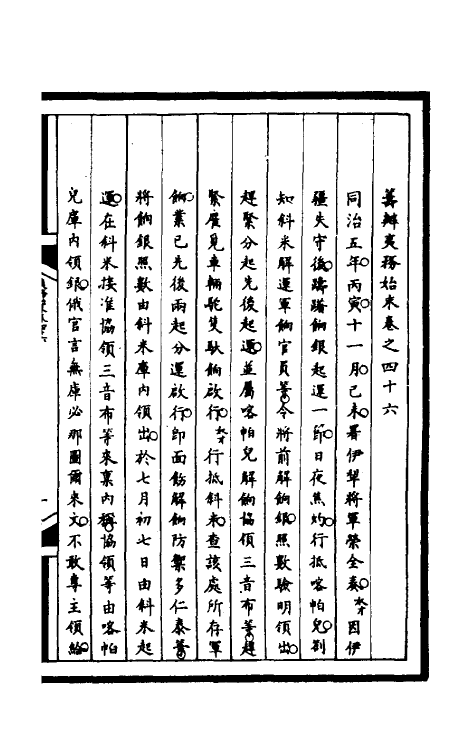 籌辦夷務始末卷之四十六
同治五年丙寅十一月己未署伊犂將軍榮全奏。才因伊
疆失守後。躊躇餉銀起運一節。日夜焦灼。行抵喀帕兒。劄
知斜米解運軍餉官員等。令將前解餉銀。照數驗明領出。
趕緊分起先後起運。並屬喀帕兒解餉協領三音布等。趕
緊雇覓車輛駝隻馱餉啟行。才行抵斜米。查該處所存軍
餉。業已先後兩起分運啟行。即面飭解餉防禦多仁泰等。
將餉銀照數由斜米庫內領出。於七月初七日由斜米起
運。在斜米接准協領三音布等來稟內稱。協領等由喀帕
兒庫內領銀。俄官言無庫必那圖爾來文。不敢專主領給。